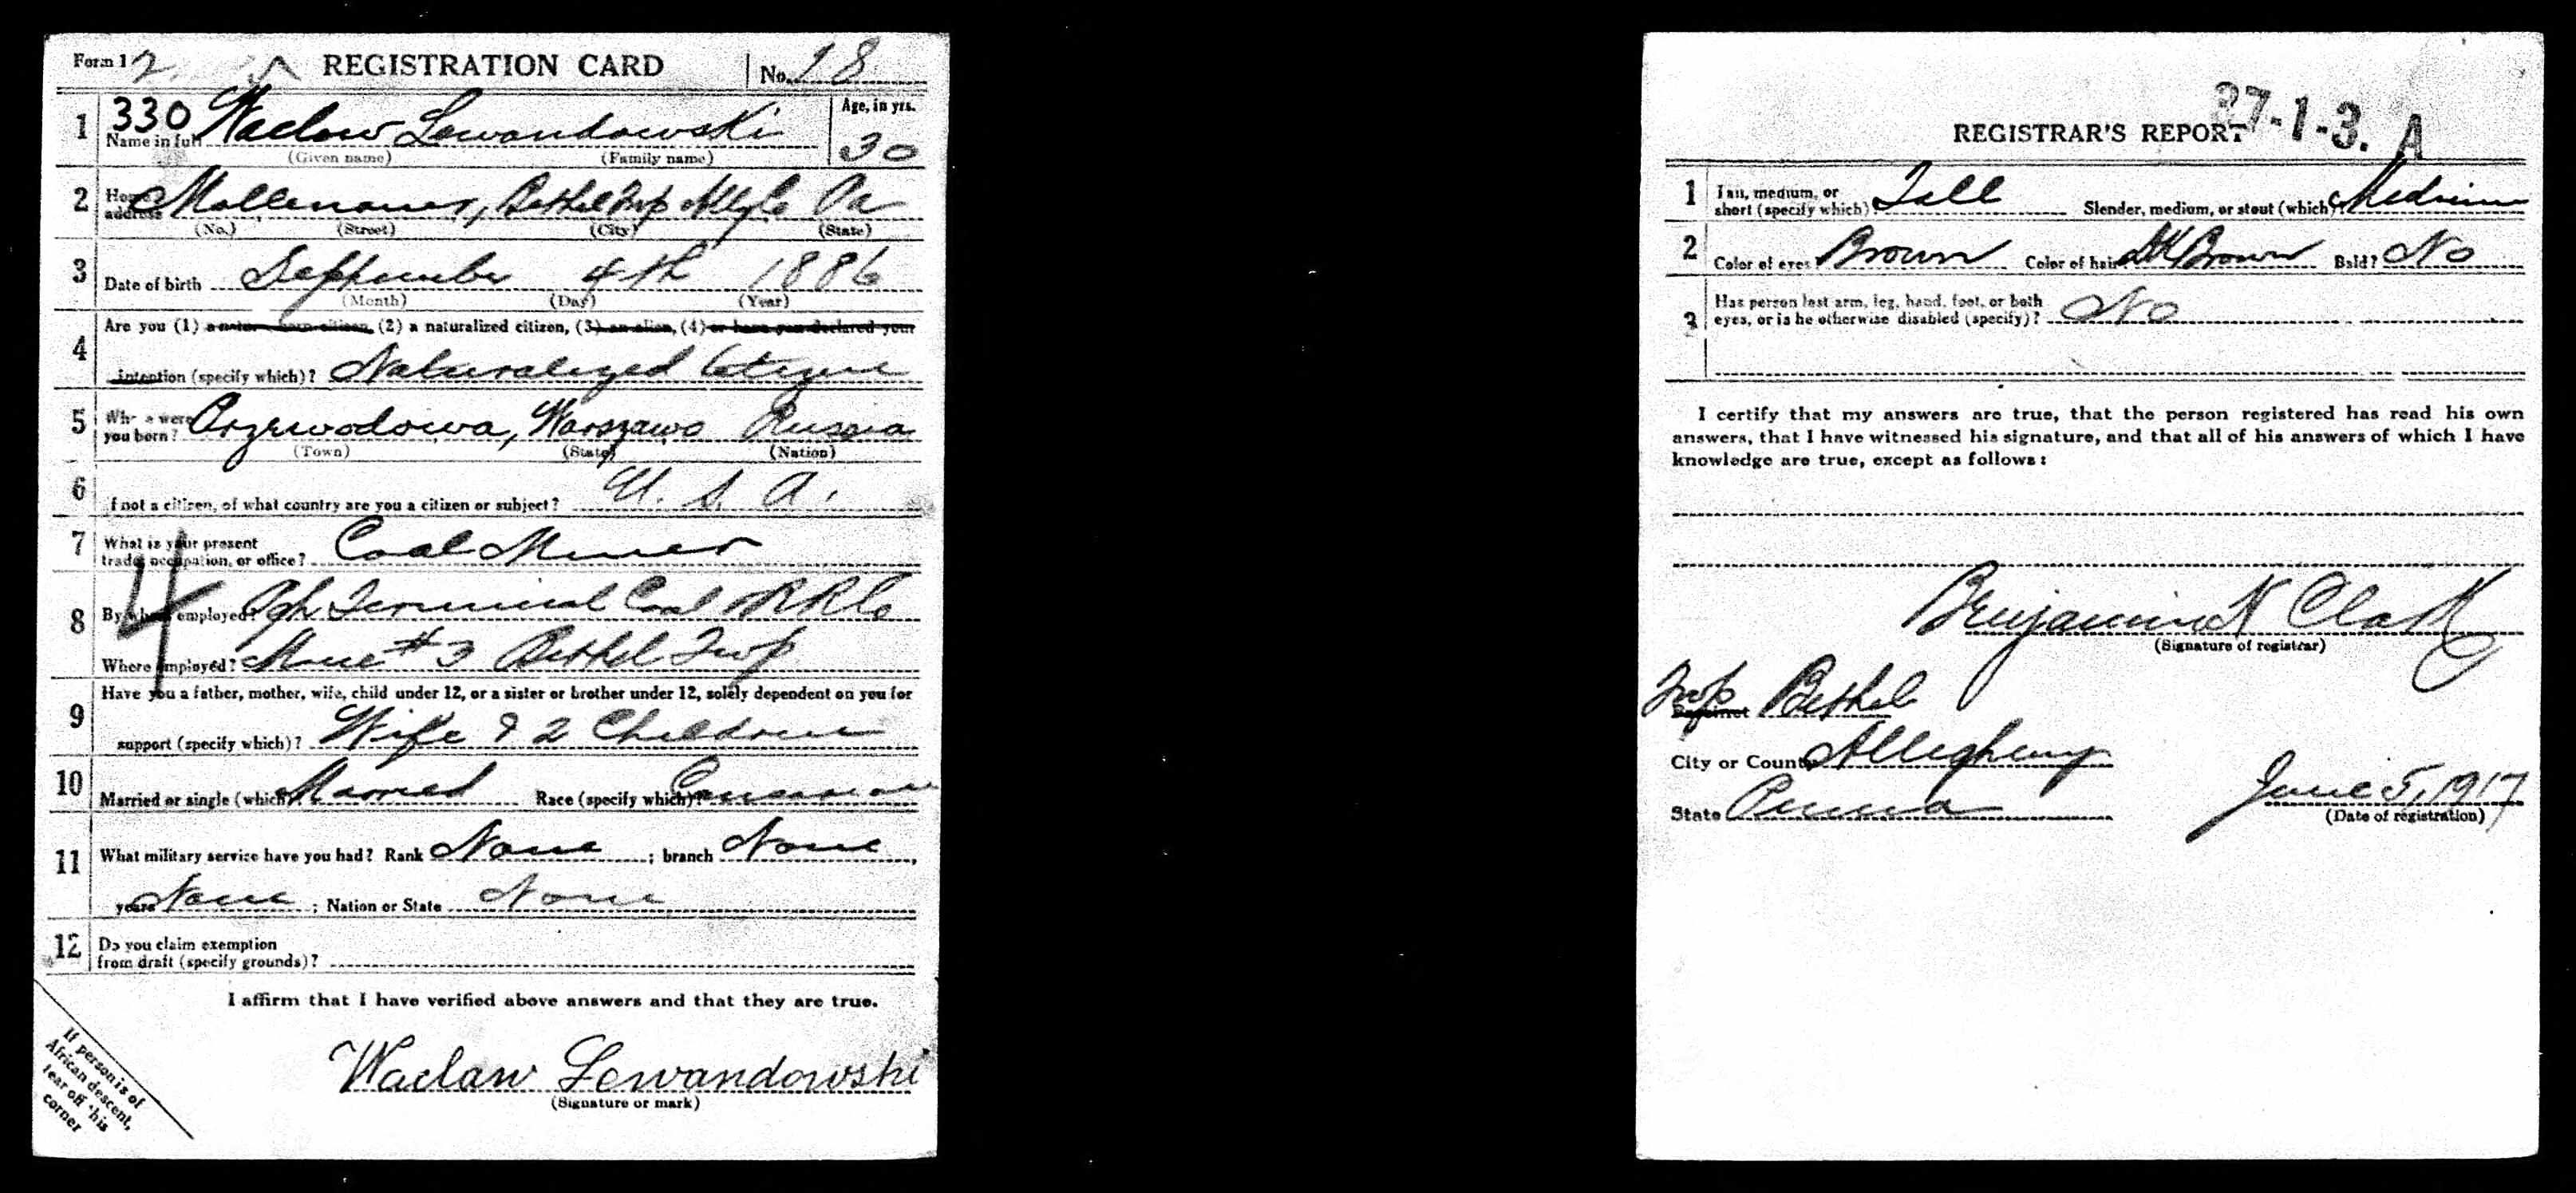 Form 1 2 REGISTRATION CARD No. 18
1 330 Name in full Waclaw Lewandowski Age, in yrs. 30
(Given name) (Family name)
2 Home address Mollenauer, Bethel Twp Allg Co Pa
(No.) (Street) (City) (State)
3 Date of birth September 4th 1886
(Month) (Day) (Year)
4 Are you (1) a natural-born citizen, (2) a naturalized citizen, (3) an alien, (4) or have you declared your
intention (specify which)? Naturalized Citizen
5 Where were you born? Przewodowa, Warszawo Russia
(Town) (State) (Nation)
6 If not a citizen, of what country are you a citizen or subject? U. S. A.
7 What is your present
trade, occupation, or office? Coal Miner
4
8 By whom employed? Pgh Terminal Coal & RR Co
Where employed? Mine #3 Bethel Twp
9 Have you a father, mother, wife, child under 12, or a sister or brother under 12, solely dependent on you for
support (specify which)? Wife & 2 Children
10 Married or single (which)? Married Race (specify which)? Caucasian
11 What military service have you had? Rank None ; branch None ,
years None ; Nation or State None
12 Do you claim exemption
from draft (specify grounds)?
I affirm that I have verified above answers and that they are true.
Waclaw Lewandowski
(Signature or mark)
If person is of
African descent,
tear off this
corner
37-1-3. A
REGISTRAR'S REPORT
1 Tall, medium, or
short (specify which)? Tall Slender, medium, or stout (which)? Medium
2 Color of eyes? Brown Color of hair? Dk Brown Bald? No
3 Has person lost arm, leg, hand, foot, or both
eyes, or is he otherwise disabled (specify)? No
I certify that my answers are true, that the person registered has read his own
answers, that I have witnessed his signature, and that all of his answers of which I have
knowledge are true, except as follows:
Benjamin K Clark
(Signature of registrar)
Twp Precinct Bethel
City or County Allegheny
State Penna June 5, 1917
(Date of registration)